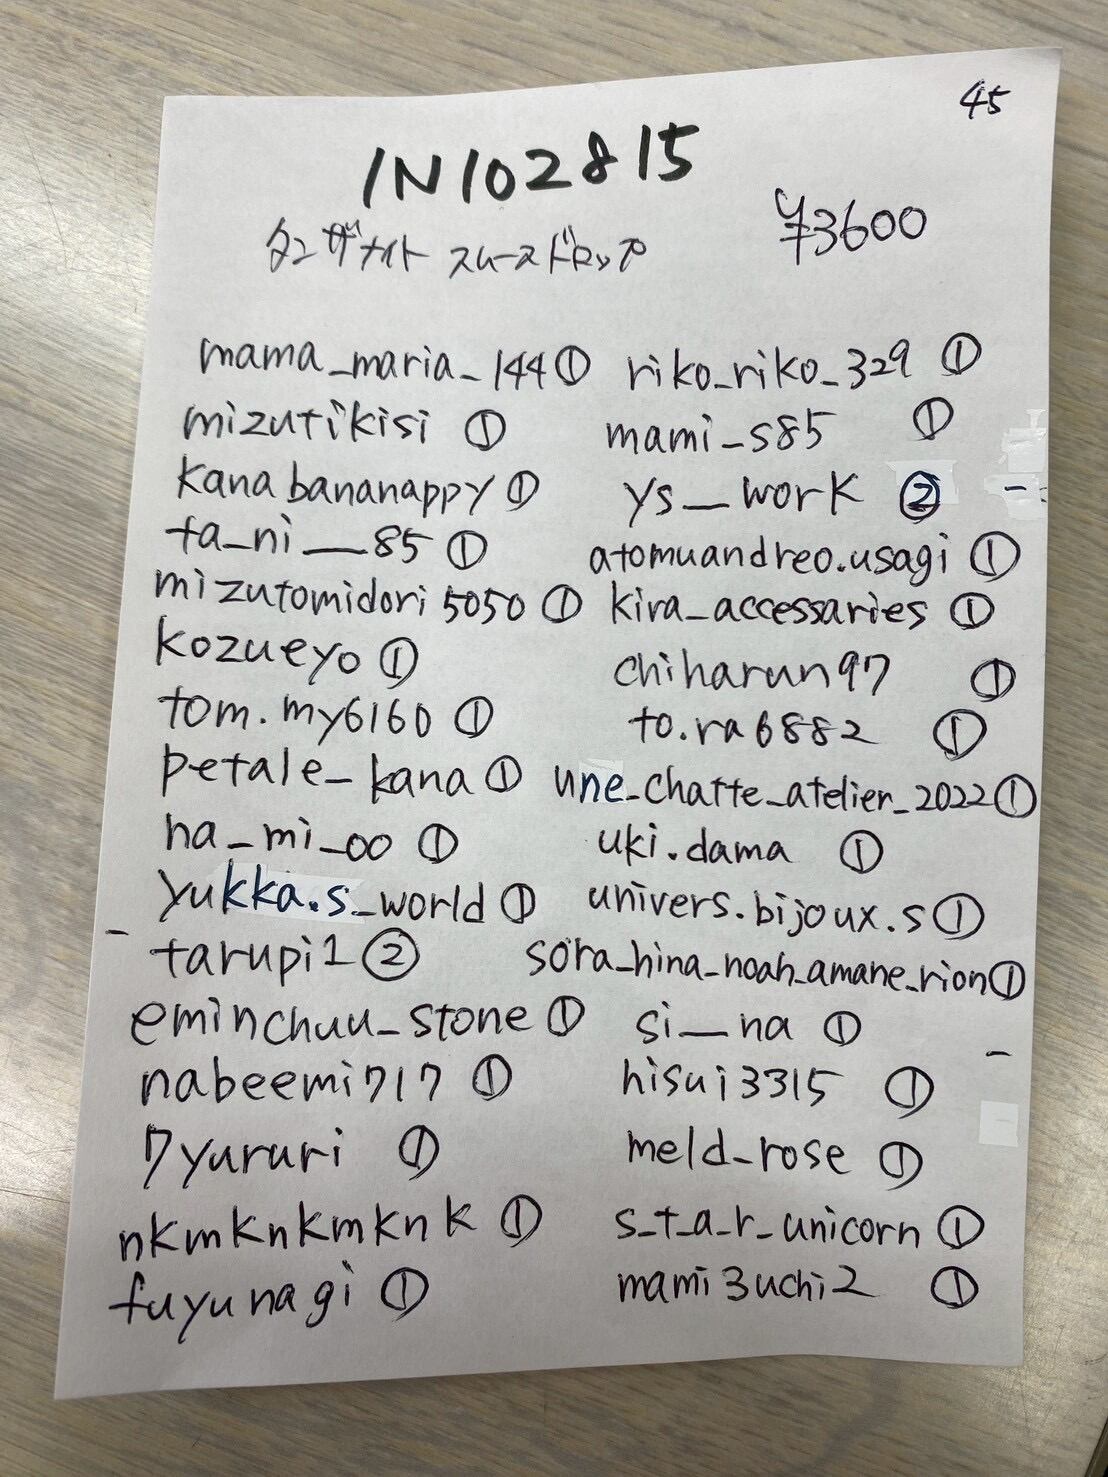 45
1N102815
¥3600
タンザナイト スムースドロップ
mama_maria_144①
mizutikisi ①
kanabananappy①
ta_ni__85①
mizutomidori5050①
kozueyo①
tom.my6160①
petale_kana①
ha_mi_oo①
yukka.s_world①
tarupi1②
eminchuu_stone①
nabeemi717①
7yururi ①
nkmknkmknk①
fuyunagi①
riko_riko_329①
mami_s85 ①
ys__work②
atomuandreo.usagi①
kira_accessaries①
chiharun97 ①
to.ra6882 ①
une_chatte_atelier_2022①
uki.dama ①
univers.bijoux.s①
sora_hina_noah_amane_rion①
si__na①
hisui3315 ①
meld_rose①
s_t_a_r_unicorn①
mami3uchi2 ①